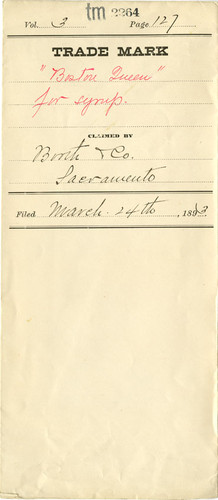 tm 2264
Vol. 3 Page 127
TRADE MARK
"Boston Queen"
for syrup.
CLAIMED BY
Booth & Co.
Sacramento
Filed March 24th, 1893